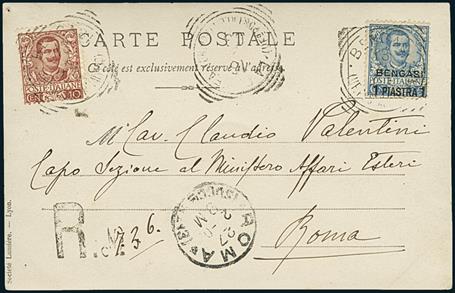 CARTE POSTALE
Ce côté est exclusivement réservé à l'adresse
POSTE ITALIANE
CENT. 10
POSTE ITALIANE
BENGASI
1 PIASTRA 1
M. Cav. Claudio Valentini
Capo Sezione al Ministero Affari Esteri
Roma
R.
ROMA
27
Société Lumière. — Lyon.